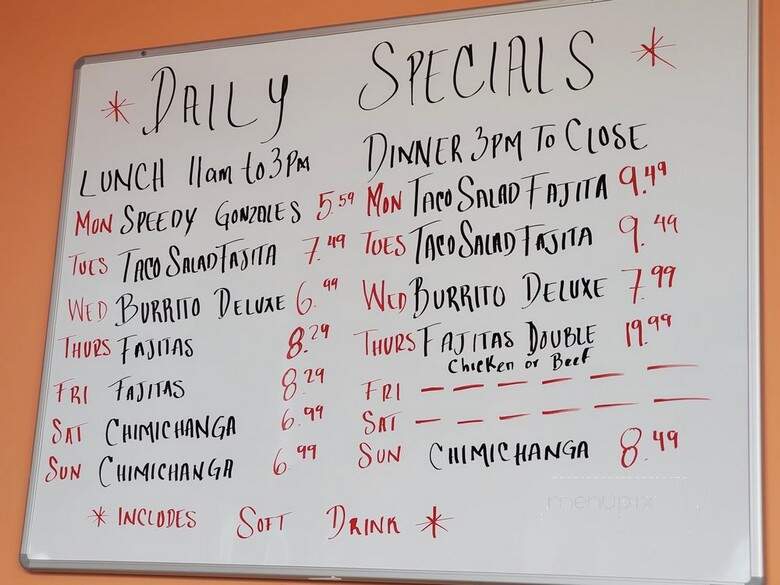 * DAILY SPECIALS *
LUNCH 11am to 3PM
MON SPEEDY GONZALES 5.59
TUES TACO SALAD FAJITA 7.49
WED BURRITO DELUXE 6.99
THURS FAJITAS 8.29
FRI FAJITAS 8.29
SAT CHIMICHANGA 6.99
SUN CHIMICHANGA 6.99
DINNER 3PM TO CLOSE
MON TACO SALAD FAJITA 9.49
TUES TACO SALAD FAJITA 9.49
WED BURRITO DELUXE 7.99
THURS FAJITAS DOUBLE 19.99
Chicken or Beef
FRI — — — — —
SAT — — — — —
SUN CHIMICHANGA 8.49
* INCLUDES SOFT DRINK *
menupix